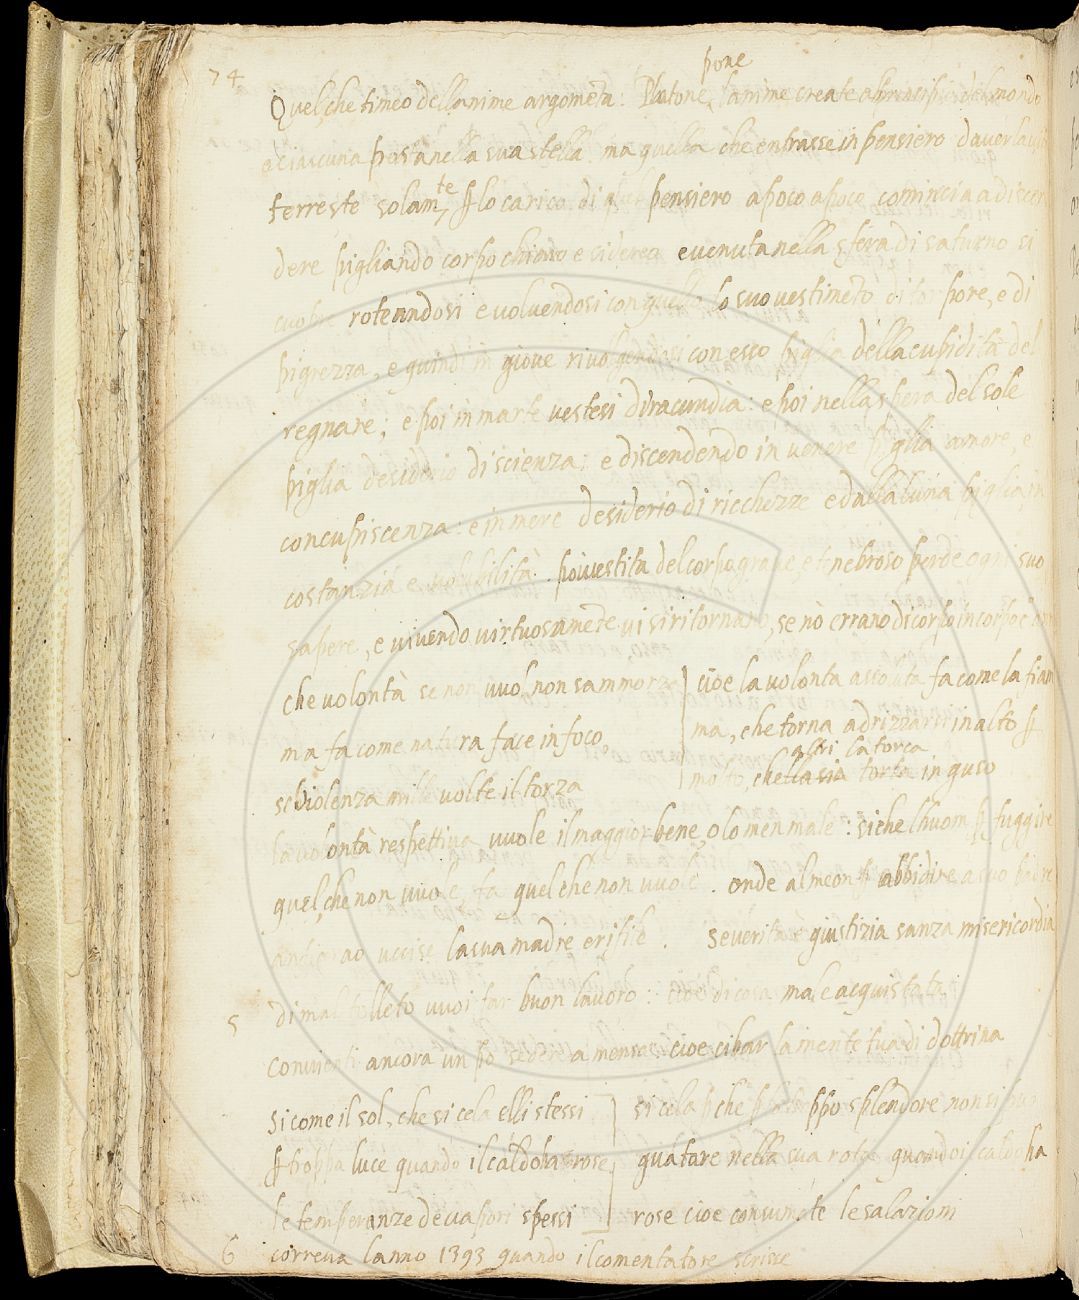 74
pone
Quel, che timeo dell anime argomẽta: Platone, lanime create al principio del mondo
e ciascuna posta nella sua stella ma quella che entrasse in pensiero d aver la vita
terreste solam.te ꝑ lo carico di q.l pensiero a poco a poco comincia a discen
dere pigliando corpo chiaro e sidereo e venuta nella sfera di saturno si
cuopre roteandosi e volvendosi con quello lo suo vestimẽto di torpore, e di
pigrezza, e quindi in giove rivolgendosi con esso piglia della cupidità del
regnare; e poi in marte vestesi diracundia: e poi nella spera del sole
piglia desiderio di scienza: e discendendo in venere piglia amore, e
concupiscenza: e in merc desiderio di ricchezze e dalla luna piglia, in
costanzia e volubilità. poi vestita del corpo grave e tenebroso perde ogni suo
sapere, e vivendo virtuosamẽte vi si ritornano, se nò errano di corpo in corpo
che volontà se non vuol non sammorza
ma fa come natura face in foco
se violenza mille volte il torza
cioè la volontà assoluta fa come la fiam
ma, che torna a drizzarsi in alto ꝑ
altri la torca
molto, che la sia torta in guso
la volontà respettiva vuole il maggior bene, o lo men male: siche lhuom ꝑ fuggire
quel, che non vuole, fa quel che non vuole. onde almeon ꝑ abbidire a suo padre
anfierao uccise la sua madre erifile. Severità è giustizia sanza misericordia
di mal tolleto vuoi far buon lavoro: cioè di cosa male acquistata
5
convienti ancora un po sedere a mensa: cioè cibar la mente tua di dottrina
Si come il sol, che si cela elli stessi
ꝑ troppa luce quando il caldo ha rose
le temperanze de vapori spessi
si cela ꝑche ꝑ lo tro ppo splendore non si può
guatare nella sua rota quando il caldo ha
rose cioè consumate le salazioni
6 correva lanno 1393 quando il comentatore scrisse